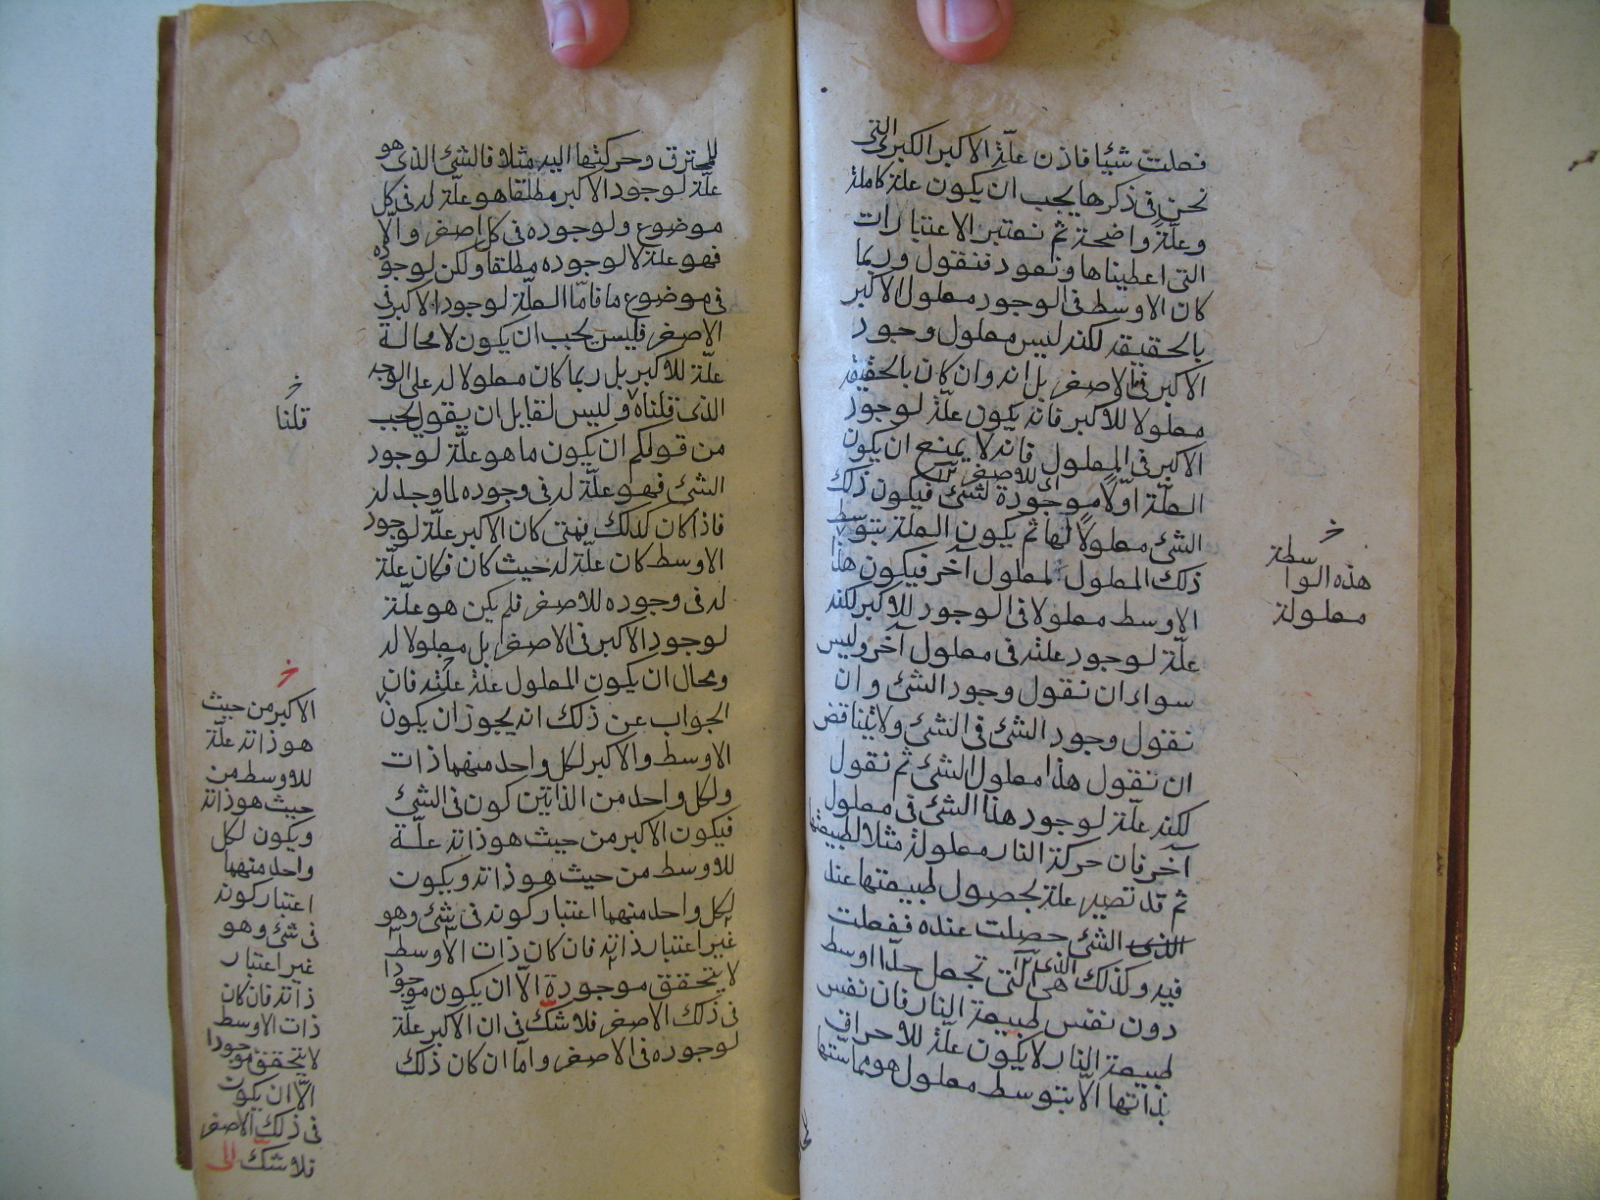 فعلت شيئا فاذن علة الاكبر الكبرى التى
نحن فى ذكرها يجب ان يكون علة كاملة
وعلّة واضحة ثم نعتبر الاعتبارات
التى اعطيناها ونعود فنقول وربما
كان الاوسط فى الوجود معلول الاكبر
بالحقيقه لكنه ليس معلول وجود
الاكبر فى الاصغر بل انه وان كان بالحقيقه
معلولا للاكبر فانه يكون علّة لوجود
الاكبر فى المعلول فانه لا يمنع ان يكون
اى للاصغر
العلّة اوّلًا موجودة لشئ فيكون ذلك
الشئ معلولًا لها ثم يكون العلة بتوسط
ذلك المعلول لمعلول آخر فيكون هذا
الاوسط معلولا فى الوجود للاكبر لكنه
علّة لوجود علته فى معلول آخر وليس
سواء ان نقول وجود الشئ وان
نقول وجود الشئ فى الشئ ولا يتناقض
ان نقول هذا معلول الشئ ثم نقول
لكنه علّة لوجود هذا الشئ فى معلول
آخر فان حركة النار معلولة مثلا لطبيعتها
ثم قد تصير علة لحصول طبيعتها عند
الذى الشئ حصلت عنده ففعلت
فيه وكذلك هى الذى التى تجعل حدّا اوسط
دون نفس طبيعة النار فان نفس
طبيعة النار لا يكون علّة للاحراق
بذاتها الّا بتوسط معلول هو مماستها
هذه الواسطة
معلولة
للمحترق وحركتها اليه مثلا فالشئ الذى هو
علّة لوجود الاكبر مطلقا هو علّة له فى كل
موضوع ولوجوده فى كل اصغر والّا
فهو علة لا لوجوده مطلقا ولكن لوجوده
فى موضوع ما فامّا العلّة لوجود الاكبر فى
الاصغر فليس يجب ان يكون لا محالة
علّة للاكبر بل ربما كان معلولا له على الوجه
الذى قلناه وليس لقايل ان يقول يجب
من قولكم ان يكون ما هو علّة لوجود
الشئ فهو علّة له فى وجوده لما وجد له
فاذا كان كذلك فمتى كان الاكبر علّة لوجود
الاوسط كان علّة له حيث كان فكان علّة
له فى وجوده للاصغر فلم يكن هو علّة
لوجود الاكبر فى الاصغر بل معلولا له
ومحال ان يكون المعلول علة علّته فان
الجواب عن ذلك انه يجوز ان يكون
الاوسط والاكبر لكل واحد منهما ذات
ولكل واحد من الذاتين كون فى الشئ
فيكون الاكبر من حيث هو ذاته علّة
للاوسط من حيث هو ذاته ويكون
لكل واحد منهما اعتبار كونه فى شئ وهو
غير اعتبار ذاته فان كان ذات الاوسط
لا يتحقق موجودة الّا ان يكون موجودا
فى ذلك الاصغر فلا شك فى ان الاكبر علّة
لوجوده فى الاصغر وامّا ان كان ذلك
قلنا
الاكبر من حيث
هو ذاته علّة
للاوسط من
حيث هو ذاته
ويكون لكل
واحد منهما
اعتبار كونه
فى شئ وهو
غير اعتبار
ذاته فان كان
ذات الاوسط
لا يتحقق موجودا
الّا ان يكون
فى ذلك الاصغر
فلا شك الى